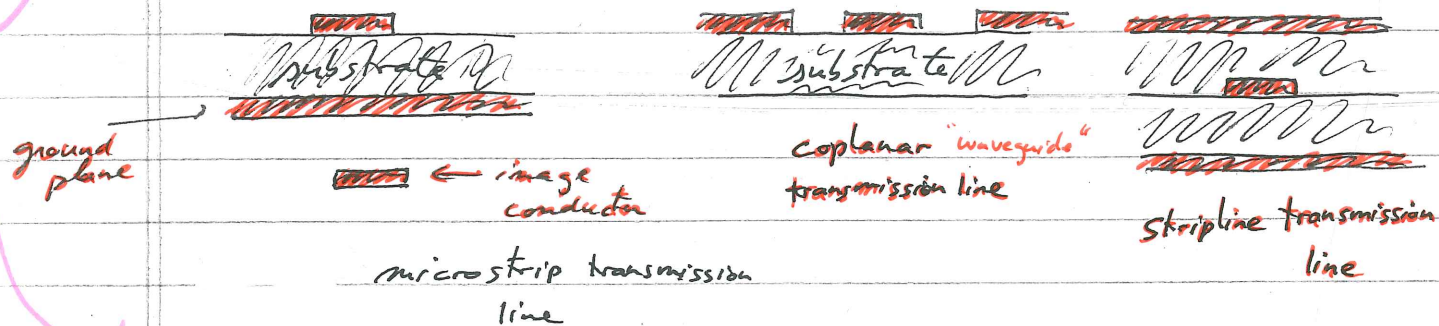 substrate
substrate
ground
plane
← image
conductor
microstrip transmission
line
coplanar "waveguide"
transmission line
stripline transmission
line